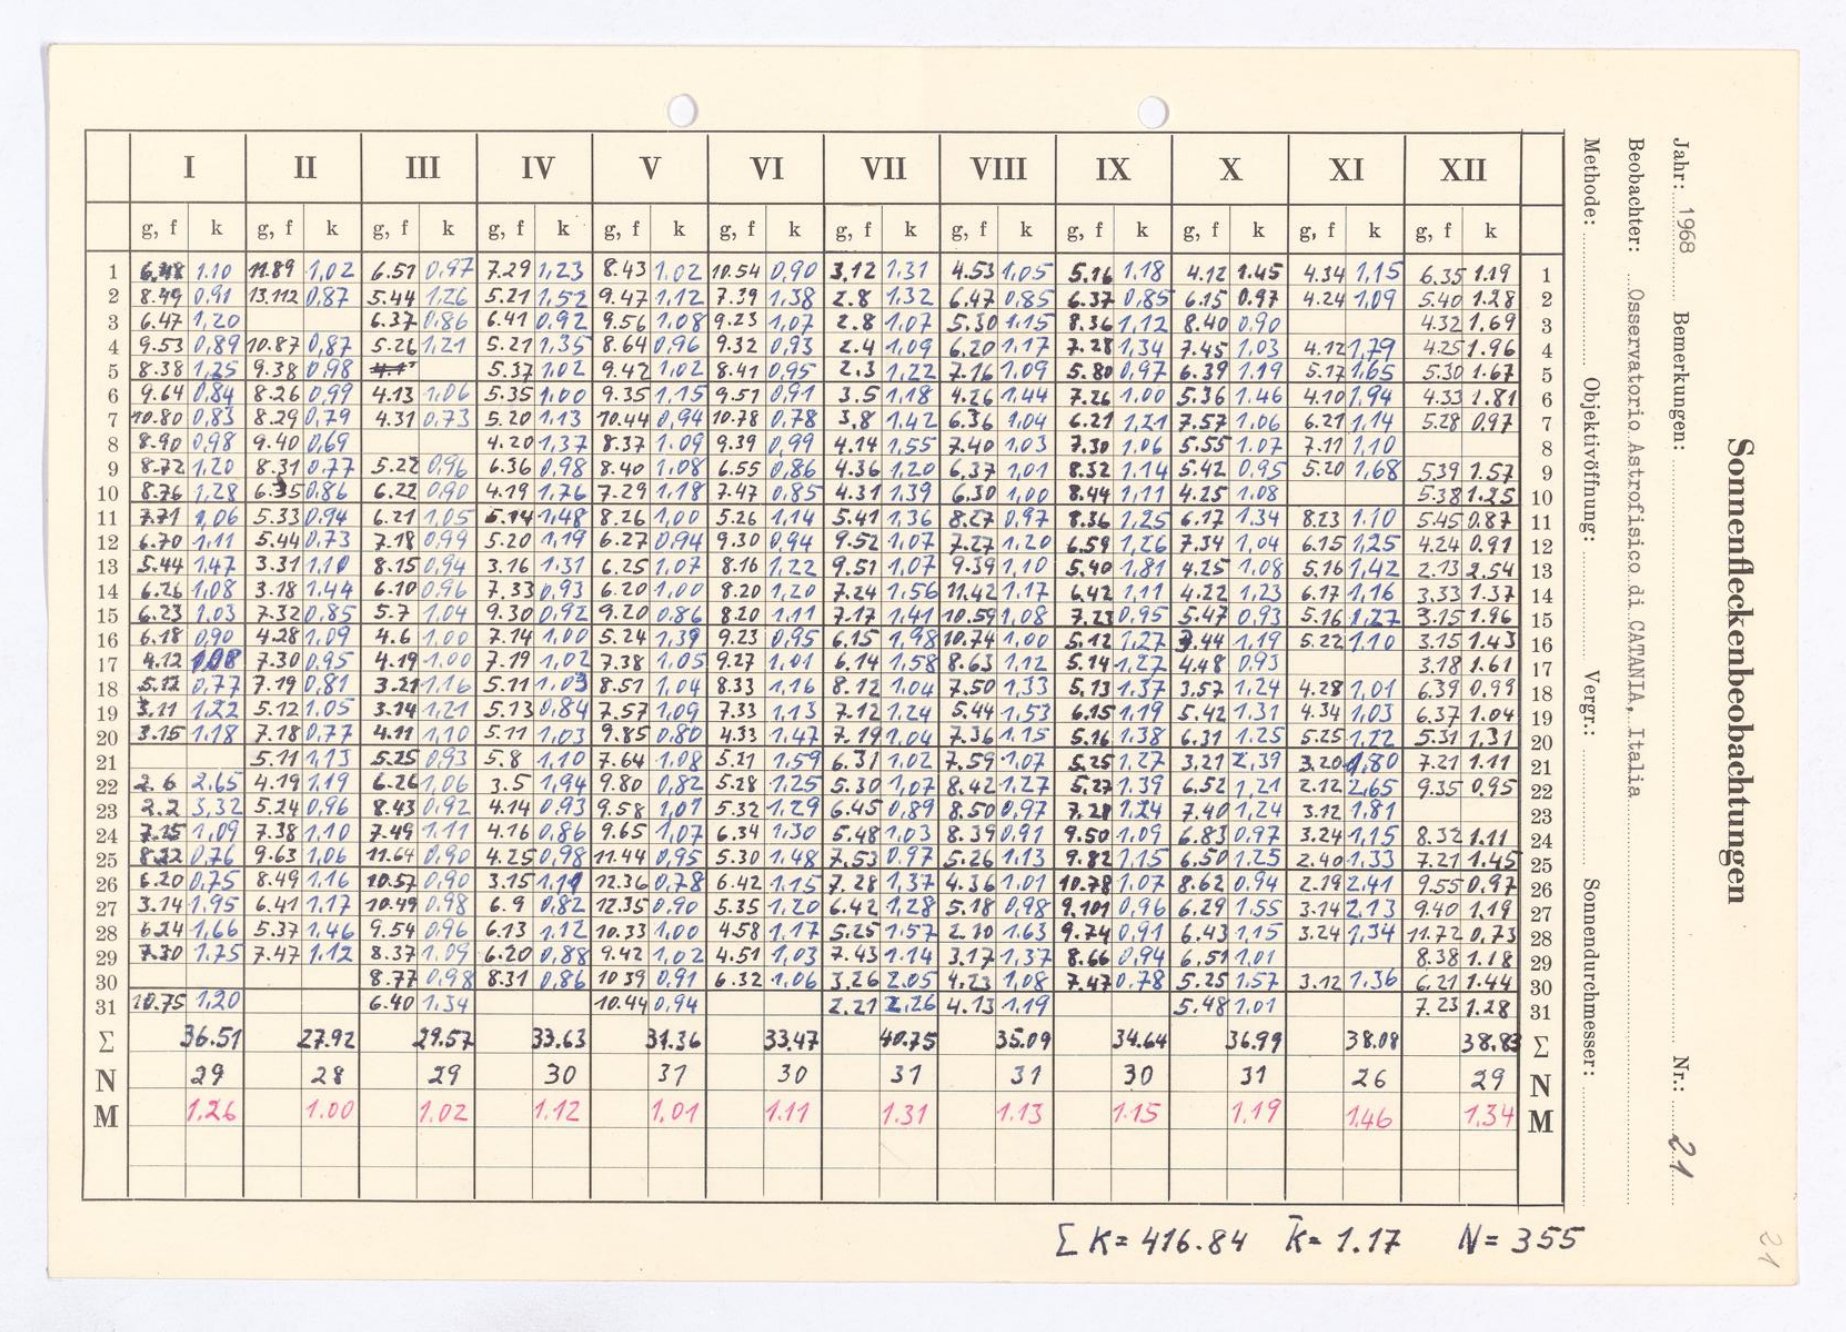 I II III IV V VI VII VIII IX X XI XII
g, f k g, f k g, f k g, f k g, f k g, f k g, f k g, f k g, f k g, f k g, f k g, f k
1 1.10 11.89 1,02 6.51 0,97 7.29 1,23 8.43 1.02 10.54 0,90 3,12 1.31 4.53 1,05 5.16 1,18 4.12 1.45 4.34 1,15 6.35 1.19 1
2 8.49 0,91 13,112 0,87 5.44 1,26 5.21 1,52 9.47 1,12 7.39 1,38 2.8 1,32 6.47 0,85 6.37 0,85 6.15 0.97 4.24 1,09 5.40 1.28 2
3 6.47 1,20 6.37 0,86 6.41 0,92 9.56 1,08 9.23 1,07 2.8 1,07 5.30 1.15 8.36 1,12 8.40 0,90 4.32 1.69 3
4 9.53 0,89 10.87 0,87 5.26 1,21 5.21 1,35 8.64 0,96 9.32 0,93 2.4 1,09 6.20 1,17 7.28 1,34 7.45 1.03 4.12 1,79 4.25 1.96 4
5 8.38 1,25 9.38 0,98 5.37 1,02 9.42 1,02 8.41 0,95 2.3 1,22 7.16 1.09 5.80 0,97 6.39 1.19 5.17 1,65 5.30 1.67 5
6 9.64 0,84 8.26 0,99 4.13 1,06 5.35 1,00 9.35 1,15 9.51 0,91 3.5 1,18 4.26 1.44 7.26 1,00 5.36 1.46 4.10 1,94 4.33 1.81 6
7 10.80 0,83 8.29 0,79 4.31 0,73 5.20 1,13 10.44 0,94 10.78 0,78 3,8 1,42 6.36 1,04 6.21 1,21 7.57 1,06 6.21 1,14 5.28 0,97 7
8 8.90 0,98 9.40 0,69 4.20 1,37 8.37 1.09 9.39 0,99 4.14 1,55 7.40 1,03 7.30 1,06 5.55 1.07 7.11 1,10 8
9 8.72 1,20 8.31 0,77 5.22 0,96 6.36 0,98 8.40 1,08 6.55 0,86 4.36 1,20 6,37 1,01 8.32 1.14 5.42 0,95 5.20 1,68 5.39 1.57 9
10 8.76 1,28 6.35 0,86 6.22 0,90 4.19 1,76 7.29 1,18 7.47 0,85 4.31 1,39 6,30 1,00 8.44 1,11 4.25 1.08 5.38 1.25 10
11 7.71 1,06 5.33 0,94 6.21 1,05 5.14 1,48 8.26 1,00 5.26 1,14 5.41 1,36 8.27 0,97 8.36 1,25 6.17 1.34 8.23 1.10 5.45 0.87 11
12 6.70 1,11 5.44 0,73 7.18 0,99 5.20 1,19 6.27 0,94 9.30 0,94 9.52 1,07 7.27 1,20 6.59 1,26 7.34 1,04 6.15 1,25 4.24 0.91 12
13 5.44 1,47 3.31 1,10 8.15 0,94 3.16 1.31 6.25 1,07 8.16 1,22 9.51 1,07 9.39 1,10 5.40 1,81 4.25 1,08 5.16 1,42 2.13 2.54 13
14 6.26 1,08 3.18 1.44 6.10 0,96 7.33 0,93 6.20 1,00 8.20 1,20 7.24 1,56 11.42 1.17 6,42 1,11 4.22 1,23 6.17 1,16 3.33 1.37 14
15 6.23 1.03 7.32 0,85 5.7 1,04 9.30 0,92 9.20 0,86 8.20 1,11 7.17 1,41 10.59 1,08 7.23 0,95 5.47 0,93 5.16 1,27 3.15 1.96 15
16 6.18 0,90 4.28 1,09 4.6 1,00 7.14 1,00 5.24 1,39 9.23 0,95 6.15 1,98 10.74 1.00 5.12 1,27 7.44 1,19 5.22 1,10 3.15 1.43 16
17 4.12 1,08 7.30 0,95 4.19 1.00 7.19 1,02 7.38 1,05 9.27 1,01 6.14 1,58 8.63 1,12 5.14 1,27 4.48 0,93 3.18 1.61 17
18 5.12 0,77 7.19 0,81 3.21 1,16 5.11 1,03 8.51 1,04 8.33 1,16 8.12 1,04 7.50 1,33 5,13 1.37 3,57 1,24 4.28 1,01 6.39 0.99 18
19 3.11 1,22 5.12 1.05 3.14 1,21 5.13 0,84 7.57 1,09 7.33 1,13 7.12 1.24 5.44 1,53 6.15 1,19 5.42 1.31 4.34 1,03 6.37 1.04 19
20 3.15 1,18 7.18 0,77 4.11 1,10 5.11 1,03 9.85 0,80 4.33 1.47 7.19 1,04 7.36 1.15 5.16 1.38 6.31 1.25 5.25 1,22 5.31 1,31 20
21 5.11 1,13 5.25 0,93 5.8 1,10 7.64 1,08 5.21 1,59 6.31 1.02 7.59 1.07 5.25 1,27 3.21 2,39 3.20 1,80 7.21 1.11 21
22 2.6 2,65 4.19 1,19 6.26 1,06 3.5 1,94 9.80 0,82 5.28 1.25 5.30 1,07 8.42 1,27 5,27 1,39 6.52 1,21 2.12 2,65 9.35 0.95 22
23 2.2 3,32 5.24 0,96 8.43 0,92 4.14 0,93 9.58 1,07 5.32 1,29 6.45 0,89 8.50 0,97 7,21 1,24 7.40 1,24 3.12 1,81 23
24 7.25 1,09 7.38 1,10 7.49 1.11 4.16 0,86 9.65 1,07 6.34 1,30 5.48 1,03 8.39 0,91 9.50 1.09 6.83 0,97 3.24 1,15 8.32 1.11 24
25 8.32 0,76 9.63 1,06 11.64 0,90 4.25 0,98 11.44 0,95 5.30 1,48 7.53 0.97 5.26 1.13 9.82 1,15 6.50 1.25 2.40 1.33 7.21 1.45 25
26 6.20 0,75 8.49 1,16 10.57 0,90 3.15 1,19 12.36 0,78 6.42 1,15 7.28 1,37 4.36 1.01 10.78 1,07 8.62 0,94 2.19 2,41 9.55 0.97 26
27 3.14 1,95 6.41 1,17 10.49 0.98 6.9 0,82 12.35 0,90 5.35 1,20 6.42 1,28 5.18 0,98 9,101 0,96 6.29 1.55 3.14 2.13 9.40 1.19 27
28 6.24 1,66 5.37 1.46 9.54 0,96 6.13 1,12 10.33 1,00 4.58 1,17 5.25 1.57 2.10 1.63 9.74 0,91 6.43 1,15 3.24 1,34 11.72 0,73 28
29 7.30 1.75 7.47 1.12 8.37 1,09 6.20 0,88 9.42 1,02 4.51 1,03 7.43 1.14 3.17 1,37 8.66 0,94 6,51 1,01 8.38 1.18 29
30 8.77 0,98 8.31 0,86 10 39 0,91 6.32 1,06 3,26 2.05 4.23 1,08 7.47 0.78 5.25 1,57 3.12 1,36 6.21 1.44 30
31 10.75 1,20 6.40 1.34 10.44 0,94 2.21 2,26 4.13 1.19 5.48 1,01 7.23 1.28 31
Σ 36.51 27.92 29.57 33.63 31.36 33.47 40.75 35.09 34.64 36.99 38.08 38.83 Σ
N 29 28 29 30 31 30 31 31 30 31 26 29 N
M 1.26 1.00 1.02 1.12 1.01 1.11 1.31 1.13 1.15 1.19 1.46 1.34 M
Σ K = 416.84 k̄ = 1.17 N = 355
Sonnenfleckenbeobachtungen
Jahr: 1968 Bemerkungen: Nr.: 21
Beobachter: Osservatorio Astrofisico di CATANIA, Italia
Methode: Objektivöffnung: Vergr.: Sonnendurchmesser:
21